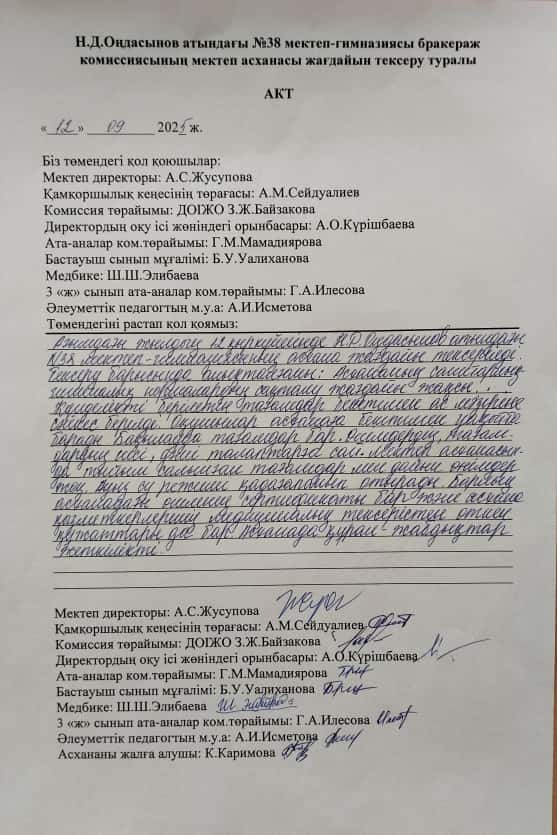 Н.Д.Оңдасынов атындағы №38 мектеп-гимназиясы бракераж
комиссиясының мектеп асханасы жағдайын тексеру туралы
АКТ
«12» 09 2025 ж.
Біз төмендегі қол қоюшылар:
Мектеп директоры: А.С.Жусупова
Қамқоршылық кеңесінің төрағасы: А.М.Сейдуалиев
Комиссия төрайымы: ДОІЖО З.Ж.Байзакова
Директордың оқу ісі жөніндегі орынбасары: А.О.Күрішбаева
Ата-аналар ком.төрайымы: Г.М.Мамадиярова
Бастауыш сынып мұғалімі: Б.У.Уалиханова
Медбике: Ш.Ш.Элибаева
3 «ж» сынып ата-аналар ком.төрайымы: Г.А.Илесова
Әлеуметтік педагогтың м.у.а: А.И.Исметова
Төмендегіні растап қол қоямыз:
жылдың 12 қыркүйегінде Н.Д. Оңдасынов атындағы
№38 мектеп-гимназиясының асхана жағдайы тексерілді.
Тексеру барысында анықталғаны: Асхананың санитарлық
гигиеналық нормалардың сақталу жағдайы жақсы.
Күнделікті берілетін тағамдар бекітілген ас мәзіріне
сәйкес берілді. Оқушылар асханаға бекітілген уақытта
барады. Бақылауда тағамдар бар.
дардың иісі, дәмі талаптарға сай. Мектеп асханасын-
да тыйым салынған тағамдар мен дайын өнімдер
жоқ. Ауыз су режимі қадағаланып отырады. Барлық
асханадағы өнімнің сертификаты бар және асхана
қызметкерлерінің медициналық тексерістен өткен
құжаттары да бар. Асханада құрал-жабдықтар
жеткілікті
Мектеп директоры: А.С.Жусупова
Қамқоршылық кеңесінің төрағасы: А.М.Сейдуалиев
Комиссия төрайымы: ДОІЖО З.Ж.Байзакова
Директордың оқу ісі жөніндегі орынбасары: А.О.Күрішбаева
Ата-аналар ком.төрайымы: Г.М.Мамадиярова
Бастауыш сынып мұғалімі: Б.У.Уалиханова
Медбике: Ш.Ш.Элибаева
3 «ж» сынып ата-аналар ком.төрайымы: Г.А.Илесова
Әлеуметтік педагогтың м.у.а: А.И.Исметова
Асхананы жалға алушы: К.Каримова